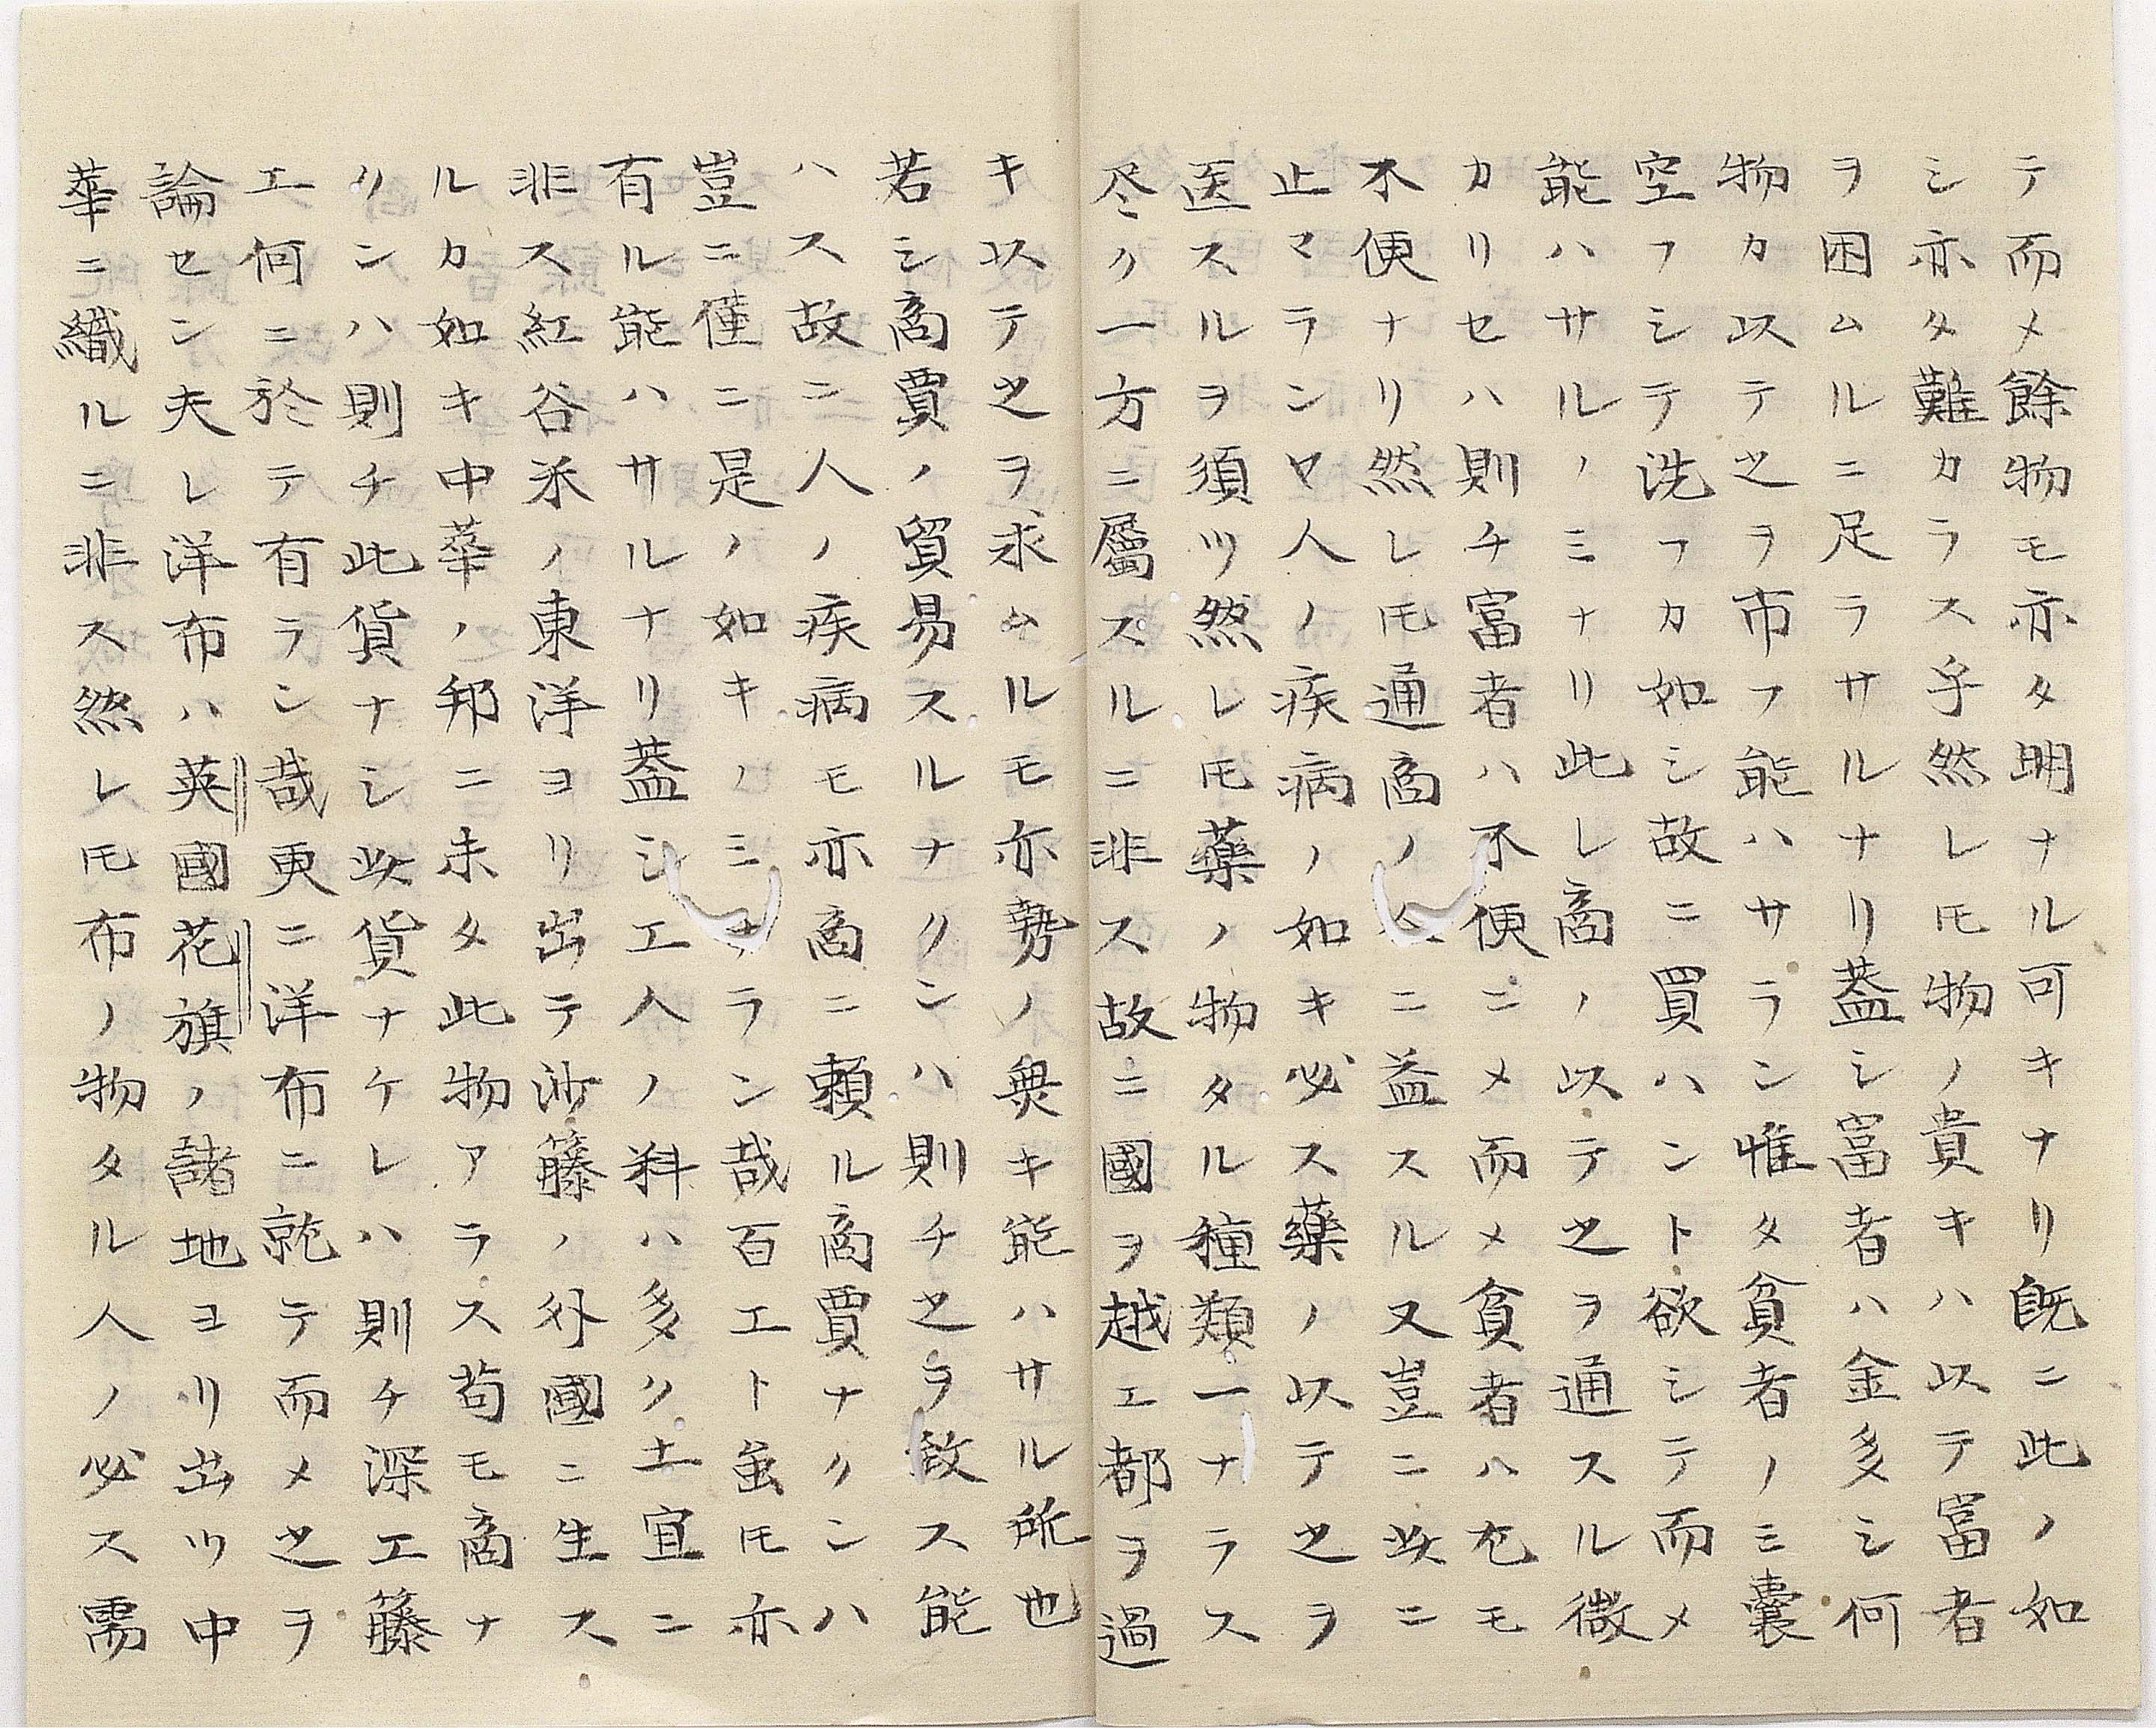 テ而メ餘物モ亦タ明ナル可キナリ既ニ此ノ如
シ亦タ難カラス乎然レ𪜈物ノ貴キハ以テ富者
ヲ困ムルニ足ラサルナリ蓋シ富者ハ金多シ何
物カ以テ之ヲ市フ能ハサラン惟タ貧者ノミ囊
空フシテ洗フカ如シ故ニ買ハント欲シテ而メ
能ハサルノミナリ此レ商ノ以テ之ヲ通スル微
カリセハ則チ富者ハ不便ニメ而メ貧者ハ尤モ
不便ナリ然レ𪜈通商ノ人ニ益スル又豈ニ此ニ
止マランヤ人ノ疾病ノ如キ必ス藥ノ以テ之ヲ
医スルヲ須ツ然レ𪜈藥ノ物タル種類一ナラス
尽ク一方ニ屬スルニ非ス故ニ國ヲ越エ都ヲ過
キ以テ之ヲ求ムルモ亦勢ノ無キ能ハサル所也
若シ商賈ノ貿易スルナクンハ則チ之ヲ致ス能
ハス故ニ人ノ疾病モ亦商ニ賴ル商賈ナクンハ
豈ニ僅ニ是ノ如キノミナラン哉百工ト虽𪜈亦
有ル能ハサルナリ蓋シ工人ノ料ハ多ク土宜ニ
非ス紅谷米ノ東洋ヨリ出テ沙籐ノ外國ニ生ス
ルカ如キ中華ノ邦ニ未タ此物アラス苟モ商ナ
リンハ則チ此貨ナシ此貨ナケレハ則チ深工籐
工何ニ於テ有ラン哉更ニ洋布ニ就テ而メ之ヲ
論セン夫レ洋布ハ英國花旗ノ諸地ヨリ出ツ中
華ニ織ルニ非ス然レ𪜈布ノ物タル人ノ必ス需